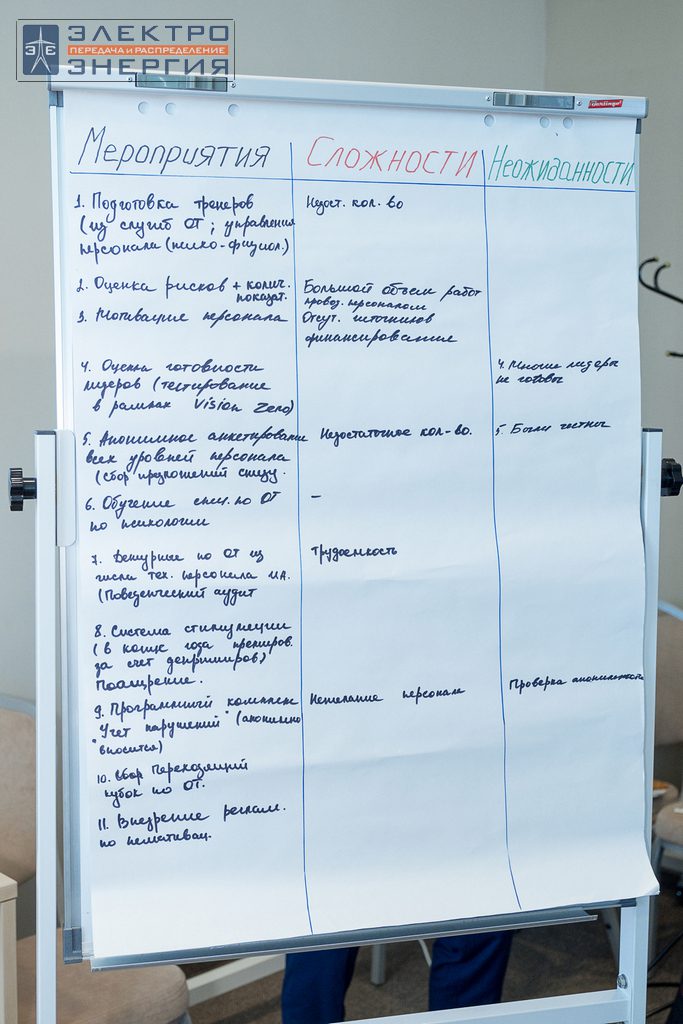 ЭЛЕКТРО
ПЕРЕДАЧА И РАСПРЕДЕЛЕНИЕ
ЭНЕРГИЯ
Мероприятия
Сложности
Неожиданности
1. Подготовка тренеров
Недост. кол. во
(из служб ОТ; управления
персонала (психо-физиол.)
2. Оценка рисков + колич.
показат.
Большой объем работ
провод. персоналом
3. Мотивация персонала
Отсут. источников
финансирования
4. Оценка готовности
лидеров (тестирование
в рамках Vision Zero)
4. Многие лидеры
не готовы
5. Анонимное анкетирование
Недостаточное кол-во.
5. Были честны
всех уровней персонала
(сбор предложений снизу.
6. Обучение спец. по ОТ
–
по психологии
7. Дежурные по ОТ из
Трудоемкость
числа тех. персонала
(Поведенческий аудит
8. Система стимуляции
(в конце года премиров.
за счет депримиров)
Поощрение.
9. Программный комплекс
Нежелание персонала
Проверка анонимности
"Учет нарушений" (анонимно
вносится)
10. Сбор Переходящий
кубок по ОТ.
11. Внедрение
по